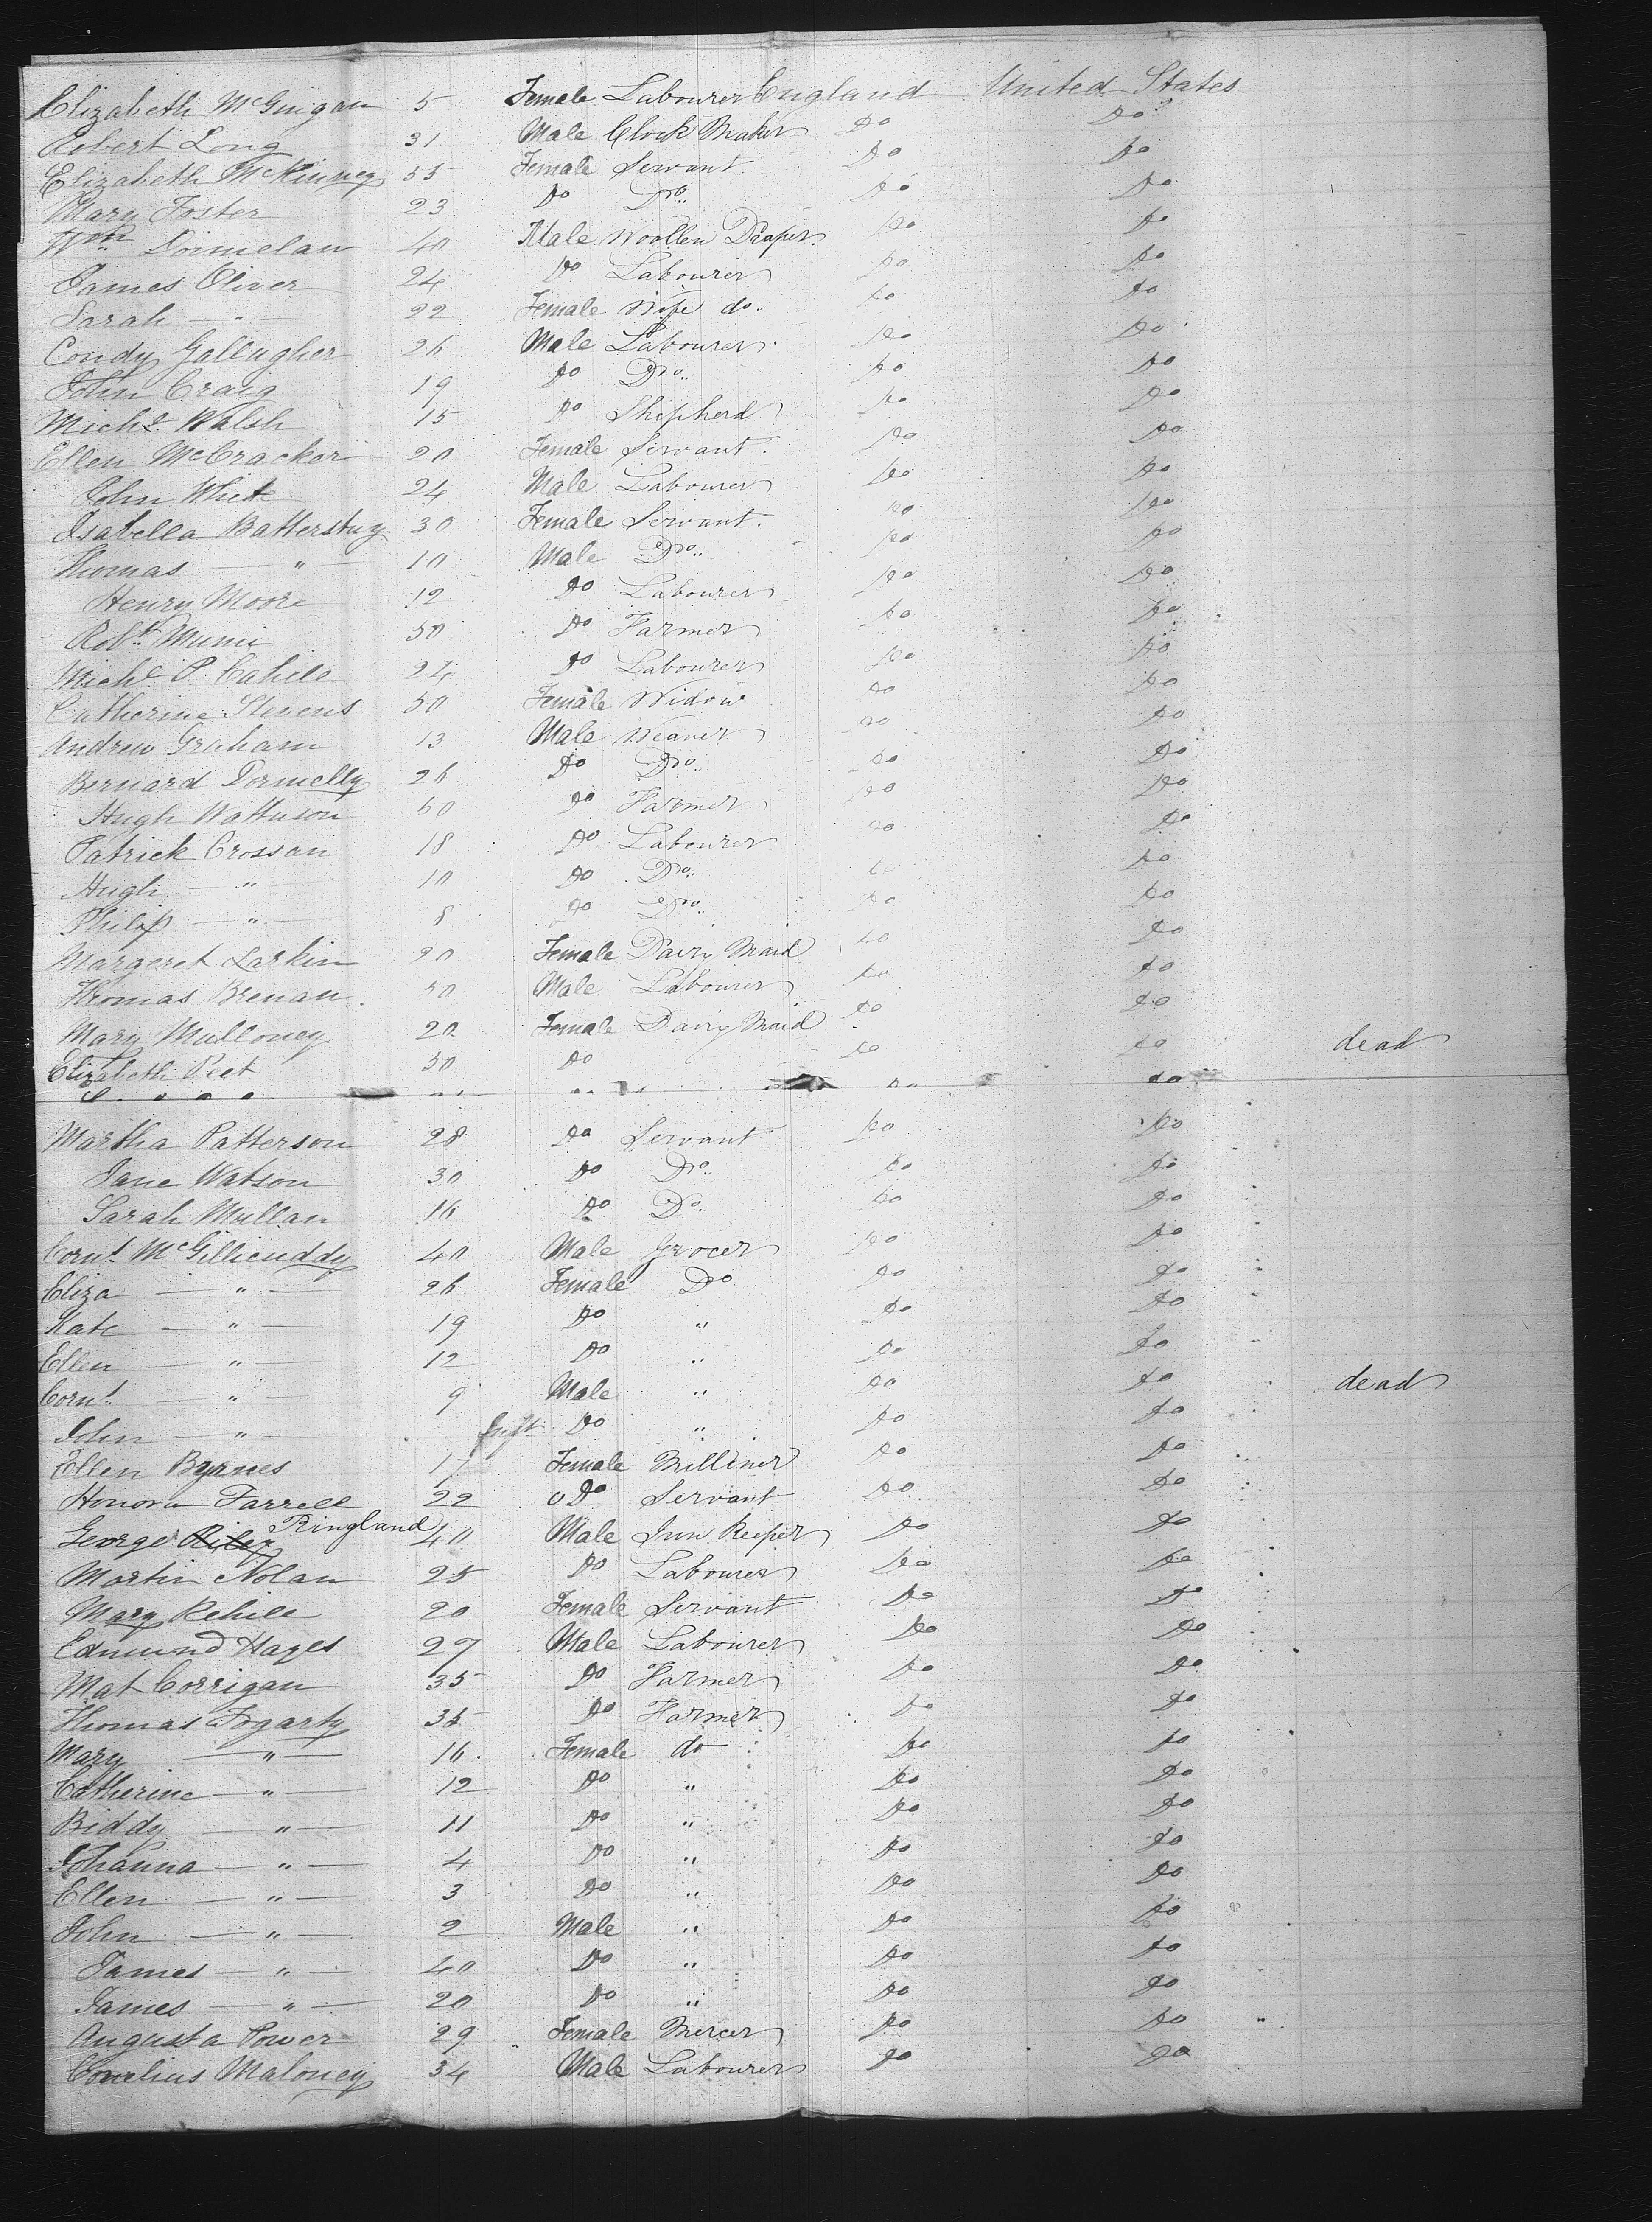 Elizabeth McGuigan 5 Female Labourer England United States
Robert Long 31 Male Clock Maker Do Do
Elizabeth McKinney 35 Female Servant Do Do
Mary Foster 23 Do Do Do Do
Wm 40 Male Woollen Draper Do Do
James Oliver 24 Do Labourer Do Do
Sarah — " — 22 Female Wife do. Do Do
Condy Gallugher 26 Male Labourer Do Do
John Craig 19 Do Do Do Do
Michl Walsh 15 Do Shepherd Do Do
Ellen McCracker 20 Female Servant Do Do
John White 24 Male Labourer Do Do
Isabella Battersbuy 30 Female Servant Do Do
Thomas — " — 10 Male Do Do Do
Henry Moore 12 Do Labourer Do Do
Robt 50 Do Farmer Do Do
Michl P. Cahill 24 Do Labourer Do Do
Catherine Stevens 50 Female Widow Do Do
Andrew Graham 13 Male Weaver Do Do
Bernard Donnelly 26 Do Do Do Do
Hugh 60 Do Farmer Do Do
Patrick Crossan 18 Do Labourer Do Do
Hugh — " — 10 Do Do Do Do
Philip — " — 8 Do Do Do Do
Margeret Larkin 20 Female Dairy Maid Do Do
Thomas Brenan 50 Male Labourer Do Do
Mary Mulloney 20 Female Dairy Maid Do Do
Elizabeth Peet 50 Do Do Do dead
Do Do
Martha Patterson 28 Do Servant Do Do
Jane Watson 30 Do Do Do Do
Sarah Mullan 16 Do Do Do Do
Cornl McGillicuddy 40 Male Grocer Do Do
Eliza — " — 26 Female Do Do Do
Kate — " — 19 Do " Do Do
Ellen — " — 12 Do " Do Do
Cornl — " — 9 Male " Do Do dead
John — " — Inft Do " Do Do
Ellen Byrnes 17 Female Milliner Do Do
Honora Farrell 22 Do Servant Do Do
George Riley Ringland 40 Male Inn Keeper Do Do
Martin Nolan 25 Do Labourer Do Do
Mary Kehile 20 Female Servant Do Do
Edmund Hayes 27 Male Labourer Do Do
Mat Corrigan 35 Do Farmer Do Do
Thomas Fogarty 35 Do Farmer Do Do
Mary — " — 16 Female do Do Do
Catherine — " — 12 Do " Do Do
Biddy — " — 11 Do " Do Do
Johanna — " — 4 Do " Do Do
Ellen — " — 3 Do " Do Do
John — " — 2 Male " Do Do
James — " — 40 Do " Do Do
James — " — 20 Do " Do Do
Augusta Power 29 Female Mercer Do Do
Cornelius Maloney 34 Male Labourer Do Do